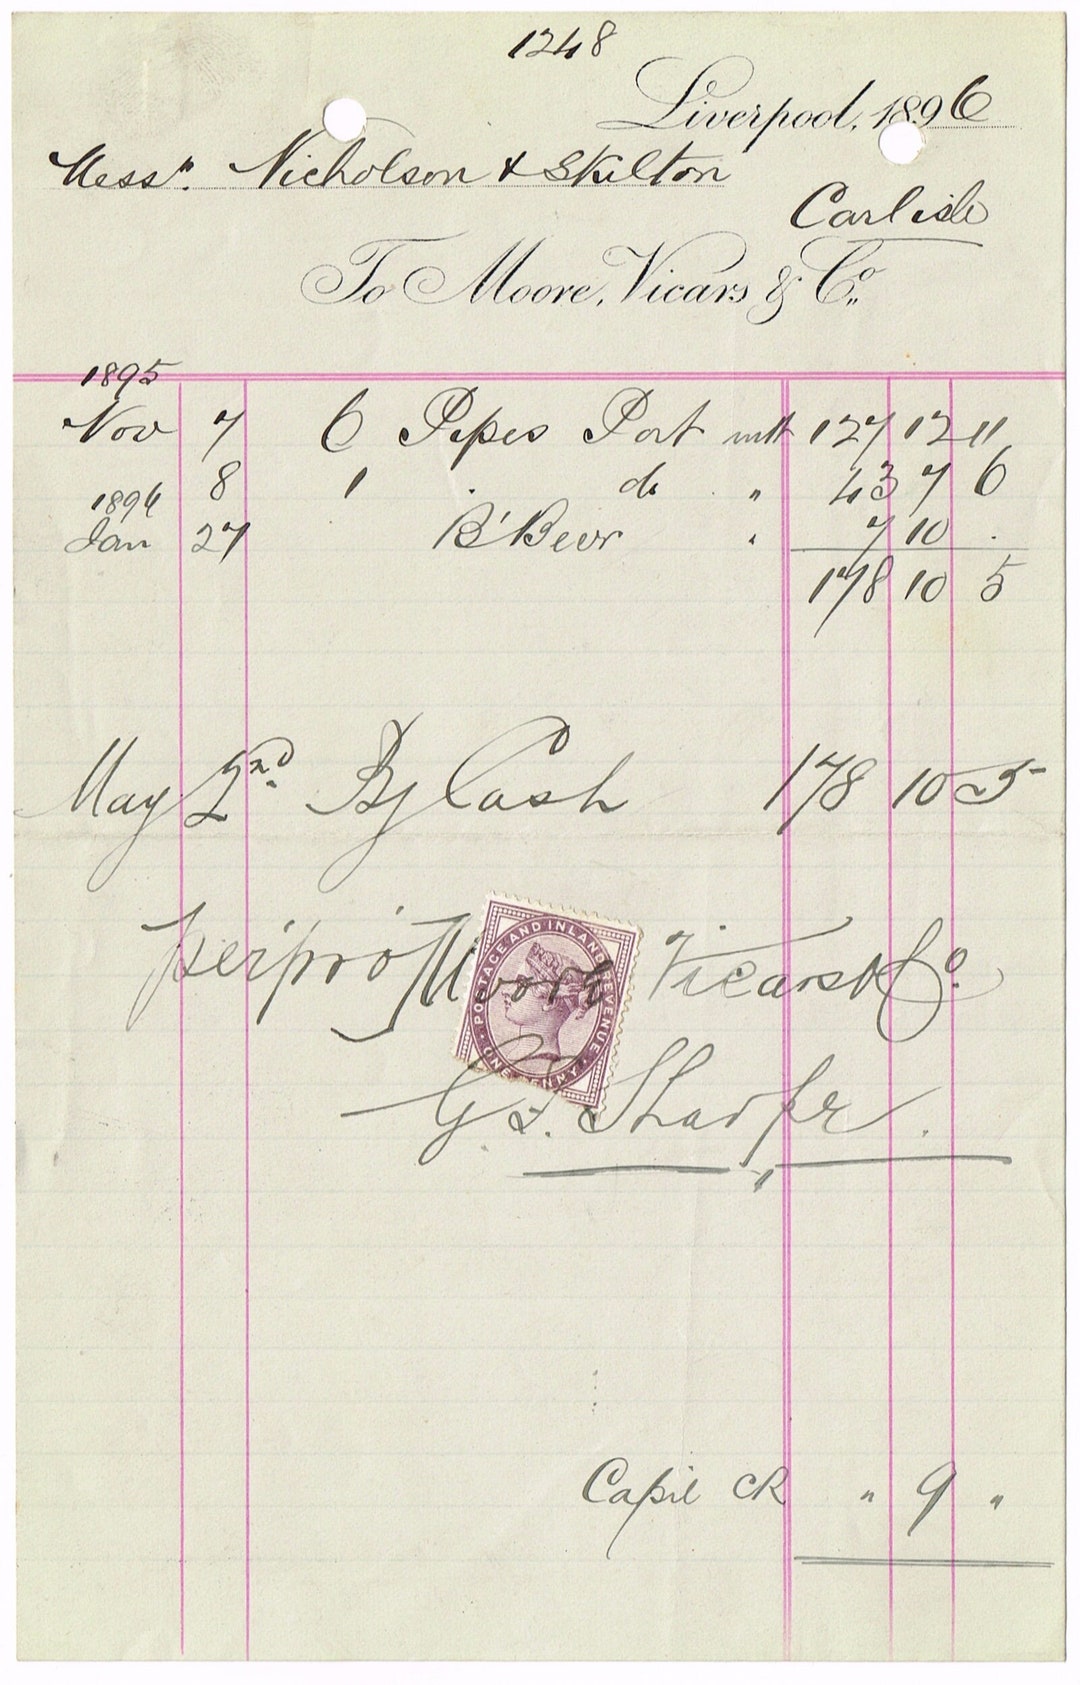 1248
Liverpool, 1896
Messrs. Nicholson & Skilton
Carlisle
To Moore, Vicars & Co.
1895
Nov 7 6 Pipes Port 127 12 11
8 1 do " 43 7 6
1896
Jan 27 B'Beer " 7 10 .
178 10 5
May 2nd By Cash 178 10 5
per pro Moore Vicars & Co.
POSTAGE AND INLAND REVENUE
ONE PENNY
G. F. Sharpe.
" 9 "